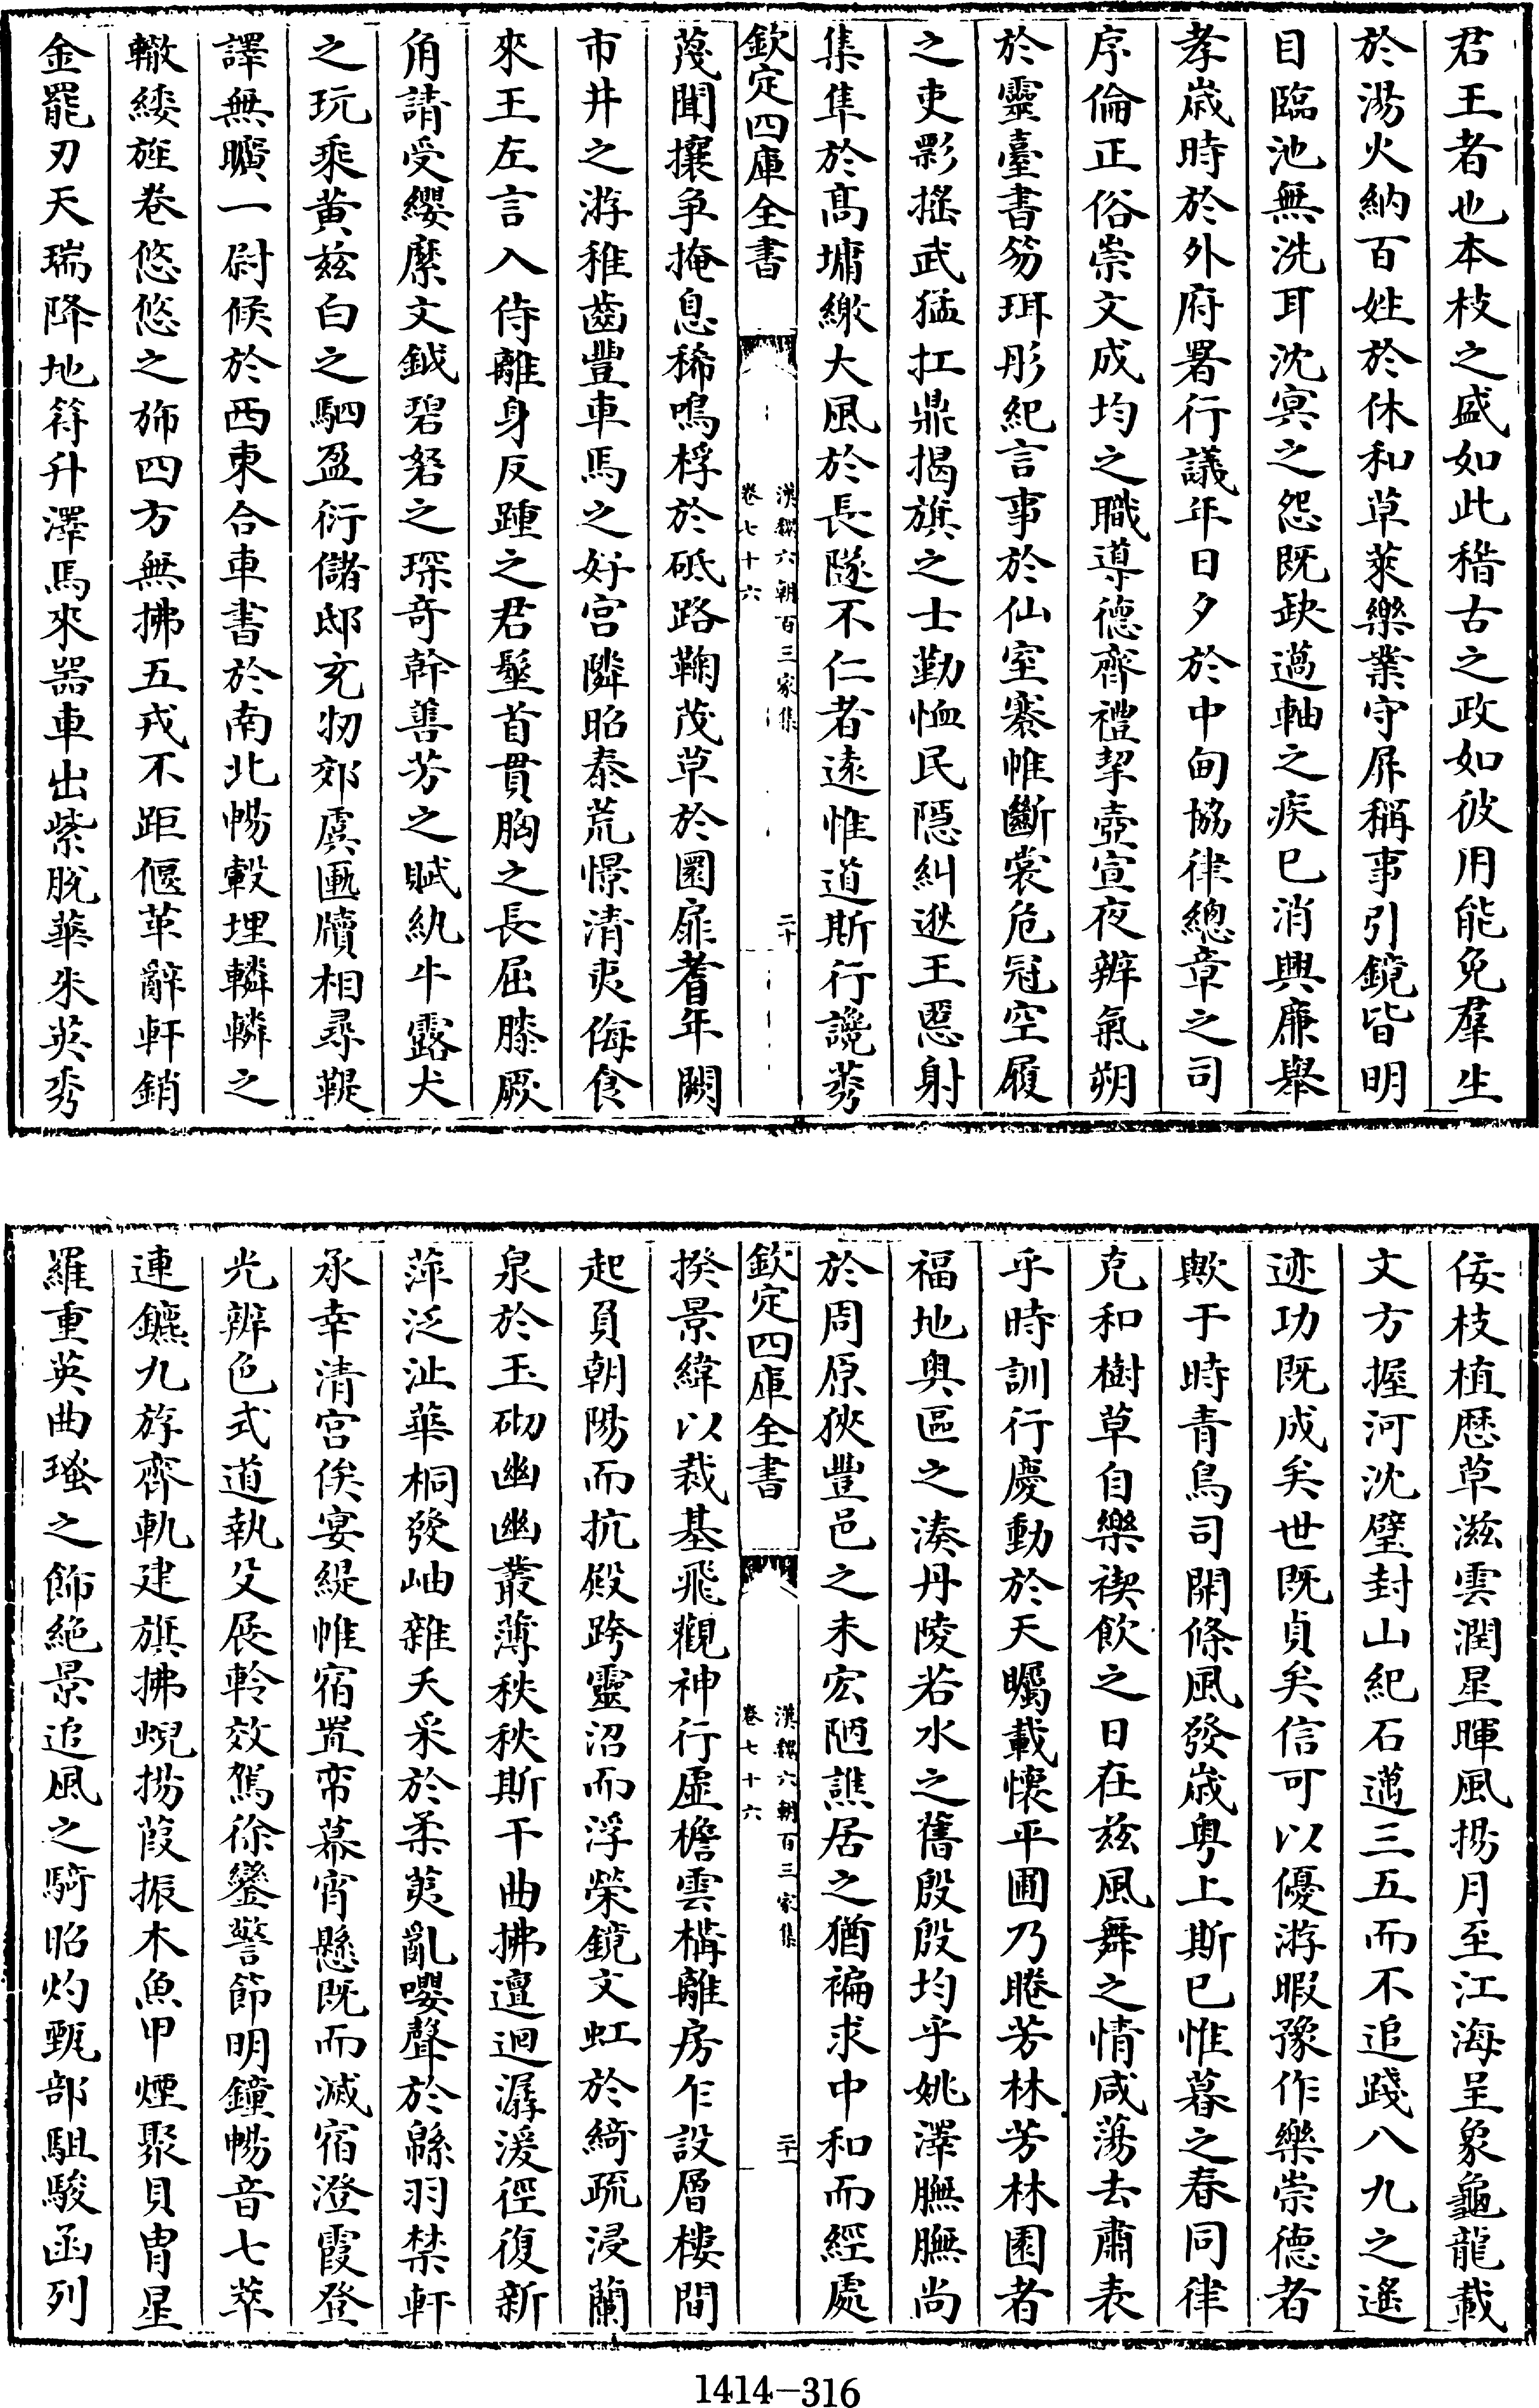 君王者也本枝之盛如此稽古之政如彼用能免羣生
於湯火納百姓於休和草萊樂業守屏稱事引鏡皆明
目臨池無洗耳沈冥之怨既缺薖軸之疾已消興廉舉
孝歲時於外府署行議年日夕於中甸協律總章之司
序倫正俗崇文成均之職導德齊禮挈壺宣夜辨氣朔
於靈臺書笏珥彤紀言事於仙室褰帷斷裳危冠空履
之吏彯搖武猛扛鼎揭旗之士勤恤民隱糾逖王慝射
集隼於高墉繳大風於長隧不仁者遠惟道斯行讒莠
欽定四庫全書
漢魏六朝百三家集
卷七十六
二十
蔑聞攘爭掩息稀鳴桴於砥路鞠茂草於圜扉耆年闕
市井之游稚齒豐車馬之好宮隣昭泰荒憬清夷侮食
來王左言入侍離身反踵之君髽首貫胸之長屈膝厥
角請受纓縻文鉞碧砮之琛奇幹善芳之賦紈牛露犬
之玩乘黃茲白之駟盈衍儲邸充牣郊虞匭牘相尋鞮
譯無曠一尉候於西東合車書於南北暢轂埋轔轔之
轍緌旌卷悠悠之旆四方無拂五戎不距偃革辭軒銷
金罷刃天瑞降地符升澤馬來器車出紫脫華朱英秀
佞枝植歷草滋雲潤星暉風揚月至江海呈象龜龍載
文方握河沈璧封山紀石邁三五而不追踐八九之遙
迹功既成矣世既貞矣信可以優游暇豫作樂崇德者
歟于時青鳥司開條風發歲粵上斯巳惟暮之春同律
克和樹草自樂禊飲之日在茲風舞之情咸蕩去肅表
乎時訓行慶動於天矚載懷平圃乃睠芳林芳林園者
福地奧區之湊丹陵若水之舊殷殷均乎姚澤膴膴尚
於周原狹豐邑之未宏陋譙居之猶褊求中和而經處
欽定四庫全書
漢魏六朝百三家集
卷七十六
二十一
揆景緯以裁基飛觀神行虛檐雲構離房乍設層樓間
起負朝陽而抗殿跨靈沼而浮榮鏡文虹於綺疏浸蘭
泉於玉砌幽幽叢薄秩秩斯干曲拂邅迴潺湲徑復新
萍泛沚華桐發岫雜夭采於柔荑亂嚶聲於緜羽禁軒
承幸清宮俟宴緹帷宿置帟幕宵懸既而滅宿澄霞登
光辨色式道執殳展軨效駕徐鑾警節明鐘暢音七萃
連鑣九斿齊軌建旗拂蜺揚葭振木魚甲煙聚貝胄星
羅重英曲瑵之飾絕景追風之騎昭灼甄部駔駿函列
1414-316